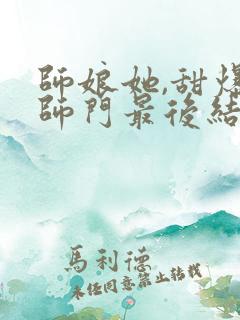 師娘她,甜爆
師門最後結
馬利德
未经同意禁止转载